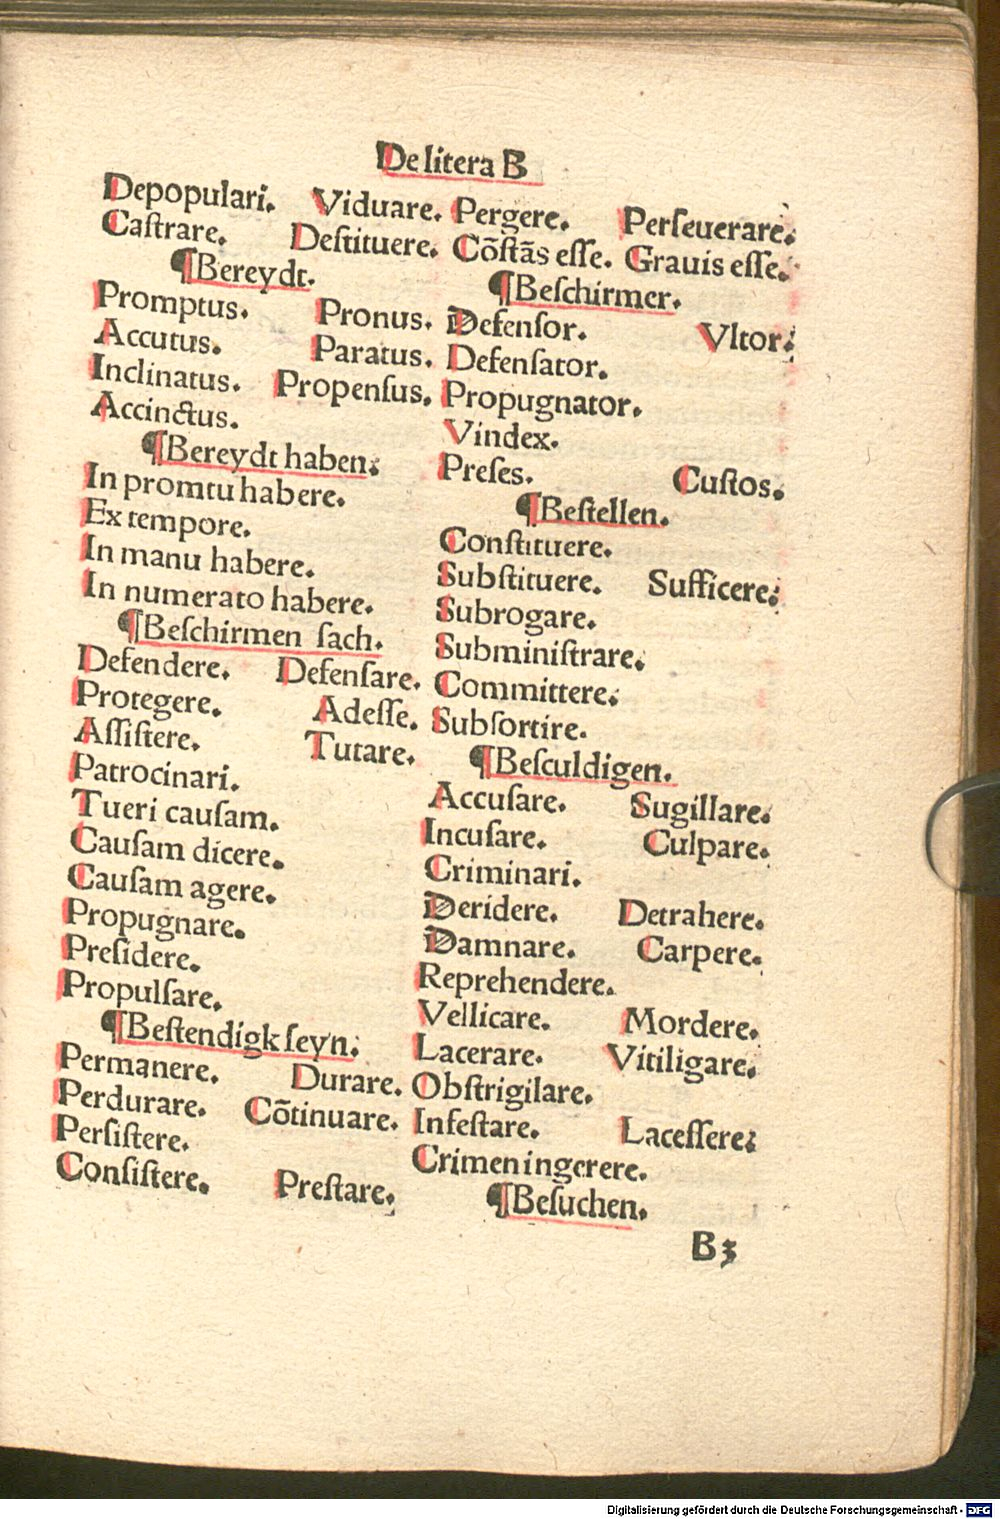 De litera B
Depopulari. Viduare.
Castrare. Destituere.
¶Bereydt.
Promptus. Pronus.
Accutus. Paratus.
Inclinatus. Propensus.
Accinctus.
¶Bereydt haben.
In promtu habere.
Ex tempore.
In manu habere.
In numerato habere.
¶Beſchirmen ſach.
Defendere. Defenſare.
Protegere. Adeſſe.
Aſſiſtere. Tutare.
Patrocinari.
Tueri cauſam.
Cauſam dicere.
Cauſam agere.
Propugnare.
Preſidere.
Propulſare.
¶Beſtendigk ſeyn.
Permanere. Durare.
Perdurare. Cōtinuare.
Perſiſtere.
Conſiſtere. Preſtare.
Pergere. Perſeuerare.
Cōſtās eſſe. Grauis eſſe.
¶Beſchirmer.
Defenſor. Vltor.
Defenſator.
Propugnator.
Vindex.
Preſes. Cuſtos.
¶Beſtellen.
Conſtituere.
Subſtituere. Sufficere.
Subrogare.
Subminiſtrare.
Committere.
Subſortire.
¶Beſculdigen.
Accuſare. Sugillare.
Incuſare. Culpare.
Criminari.
Deridere. Detrahere.
Damnare. Carpere.
Reprehendere.
Vellicare. Mordere.
Lacerare. Vitiligare.
Obſtrigilare.
Infeſtare. Laceſſere.
Crimen ingerere.
¶Beſuchen.
B3
Digitalisierung gefördert durch die Deutsche Forschungsgemeinschaft - DFG